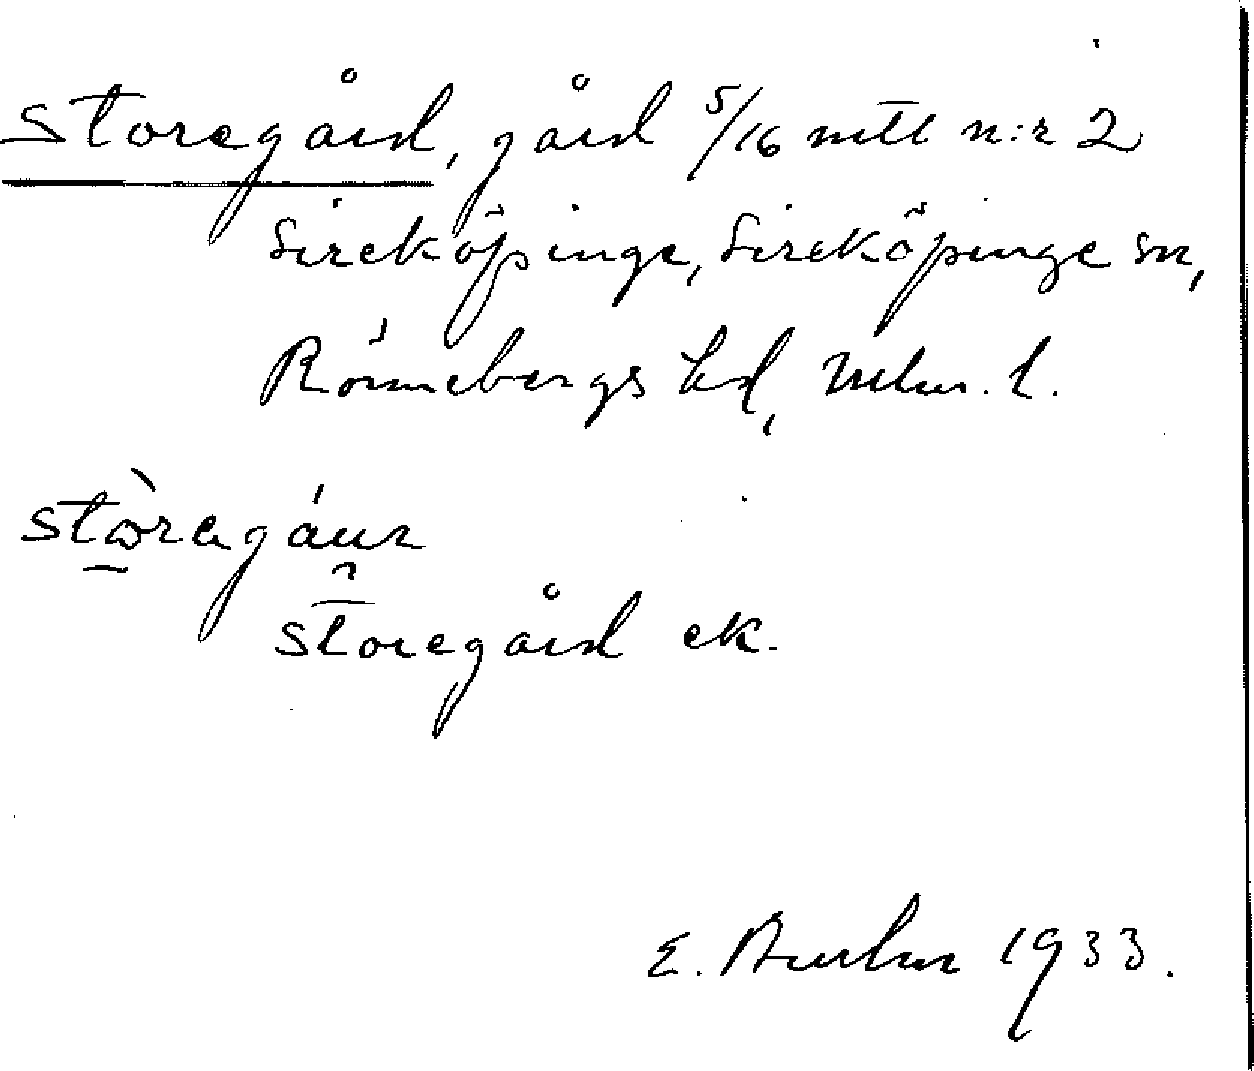 Storegård, gård 5/16 mtl n:r 2
Sireköpinge, Sireköpinge sn,
Rönnebergs hd, Mlm. l.
stòragáur
Storegård ek.
E. 1933.